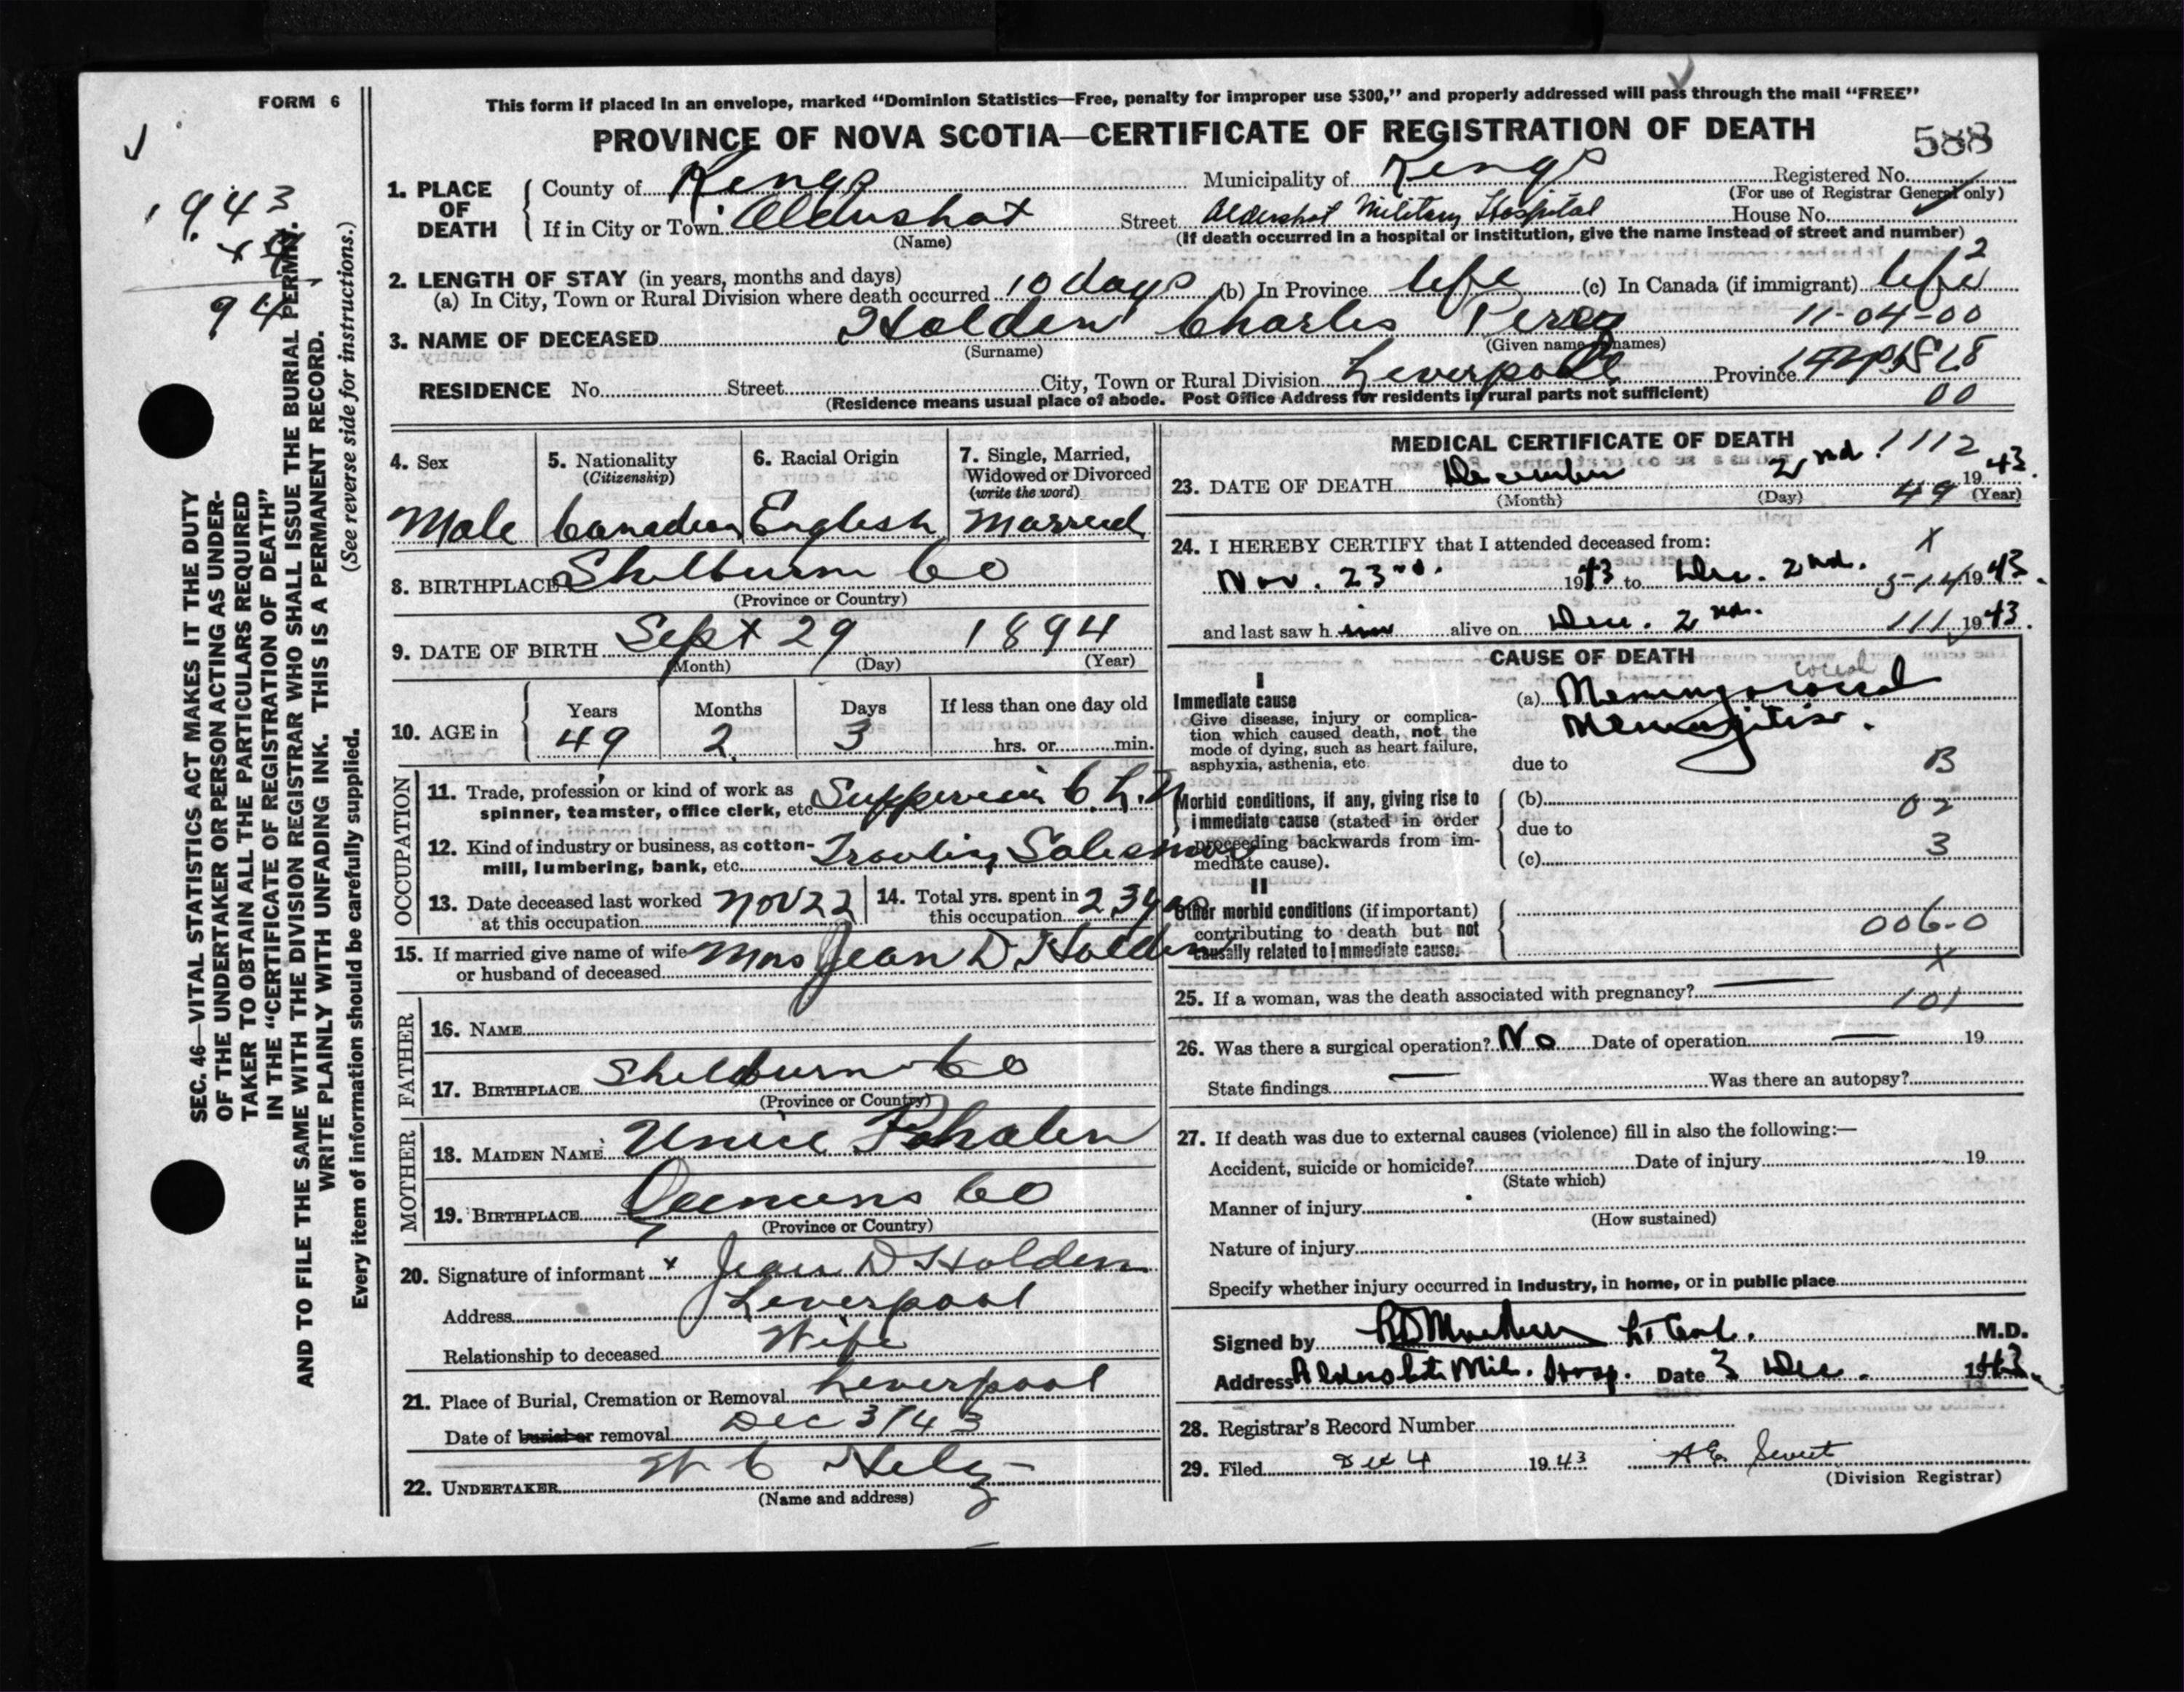 FORM 6
This form if placed in an envelope, marked “Dominion Statistics—Free, penalty for improper use $300,” and properly addressed will pass through the mail “FREE”
PROVINCE OF NOVA SCOTIA—CERTIFICATE OF REGISTRATION OF DEATH
588
1943
94
SEC. 46—VITAL STATISTICS ACT MAKES IT THE DUTY
OF THE UNDERTAKER OR PERSON ACTING AS UNDER-
TAKER TO OBTAIN ALL THE PARTICULARS REQUIRED
IN THE “CERTIFICATE OF REGISTRATION OF DEATH”
AND TO FILE THE SAME WITH THE DIVISION REGISTRAR WHO SHALL ISSUE THE BURIAL PERMIT.
WRITE PLAINLY WITH UNFADING INK. THIS IS A PERMANENT RECORD.
(See reverse side for instructions.)
Every item of information should be carefully supplied.
1. PLACE OF DEATH
County of Kings Municipality of Kings Registered No.
(For use of Registrar General only)
If in City or Town Aldershot Street Aldershot Military Hospital House No.
(Name) (If death occurred in a hospital or institution, give the name instead of street and number)
2. LENGTH OF STAY (in years, months and days)
(a) In City, Town or Rural Division where death occurred 10 days (b) In Province life (c) In Canada (if immigrant) life 2
3. NAME OF DECEASED Holden Charles Percy 11-04-00
(Surname) (Given name or names)
RESIDENCE No. Street City, Town or Rural Division Liverpool Province
00
(Residence means usual place of abode. Post Office Address for residents in rural parts not sufficient)
4. Sex
Male
5. Nationality
(Citizenship)
Canadian
6. Racial Origin
English
7. Single, Married,
Widowed or Divorced
(write the word)
Married
8. BIRTHPLACE Shelburn Co
(Province or Country)
9. DATE OF BIRTH Sept 29 1894
(Month) (Day) (Year)
10. AGE in
Years Months Days If less than one day old
49 2 3 hrs. or min.
OCCUPATION
11. Trade, profession or kind of work as
spinner, teamster, office clerk, etc.
12. Kind of industry or business, as cotton-
mill, lumbering, bank, etc. Salesman
13. Date deceased last worked
at this occupation Nov 22
14. Total yrs. spent in
this occupation 23 yrs
15. If married give name of wife
or husband of deceased Mrs Jean D Holden
FATHER
16. NAME
17. BIRTHPLACE Shelburn Co
(Province or Country)
MOTHER
18. MAIDEN NAME
19. BIRTHPLACE Co
(Province or Country)
20. Signature of informant x Jean D Holden
Address Liverpool
Relationship to deceased Wife
21. Place of Burial, Cremation or Removal Liverpool
Date of burial or removal Dec 3/43
22. UNDERTAKER W C
(Name and address)
MEDICAL CERTIFICATE OF DEATH
1112
23. DATE OF DEATH December 2nd. 1943
(Month) (Day) (Year)
49
24. I HEREBY CERTIFY that I attended deceased from:
x
Nov. 23rd. 1943 to Dec. 2nd. 1943.
and last saw him alive on Dec. 2nd. 1943.
CAUSE OF DEATH
I
Immediate cause
Give disease, injury or complica-
tion which caused death, not the
mode of dying, such as heart failure,
asphyxia, asthenia, etc.
coccal
(a) Meningococcal
Meningitis.
due to
B
Morbid conditions, if any, giving rise to
immediate cause (stated in order
proceeding backwards from im-
mediate cause).
(b)
02
due to
(c) 3
II
Other morbid conditions (if important)
contributing to death but not
causally related to immediate cause.
006-0
x
25. If a woman, was the death associated with pregnancy? —
101
26. Was there a surgical operation? No Date of operation — 19
State findings — Was there an autopsy?
27. If death was due to external causes (violence) fill in also the following:—
Accident, suicide or homicide? Date of injury 19
(State which)
Manner of injury
(How sustained)
Nature of injury
Specify whether injury occurred in Industry, in home, or in public place
Signed by Lt Col. M.D.
Address Aldershot Mil. Hosp. Date 3 Dec. 1943
28. Registrar’s Record Number
29. Filed Dec 4 1943 A E
(Division Registrar)